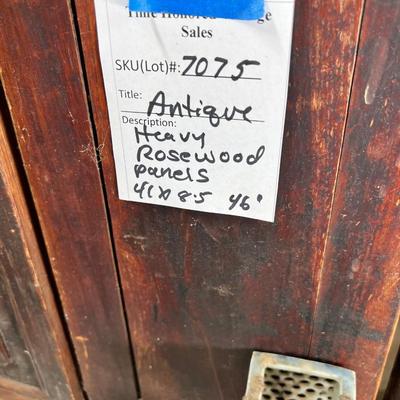 Time Honored
Sales
SKU(Lot)#: 7075
Title: Antique
Description:
Heavy
Rosewood
panels
41x8.5 46"